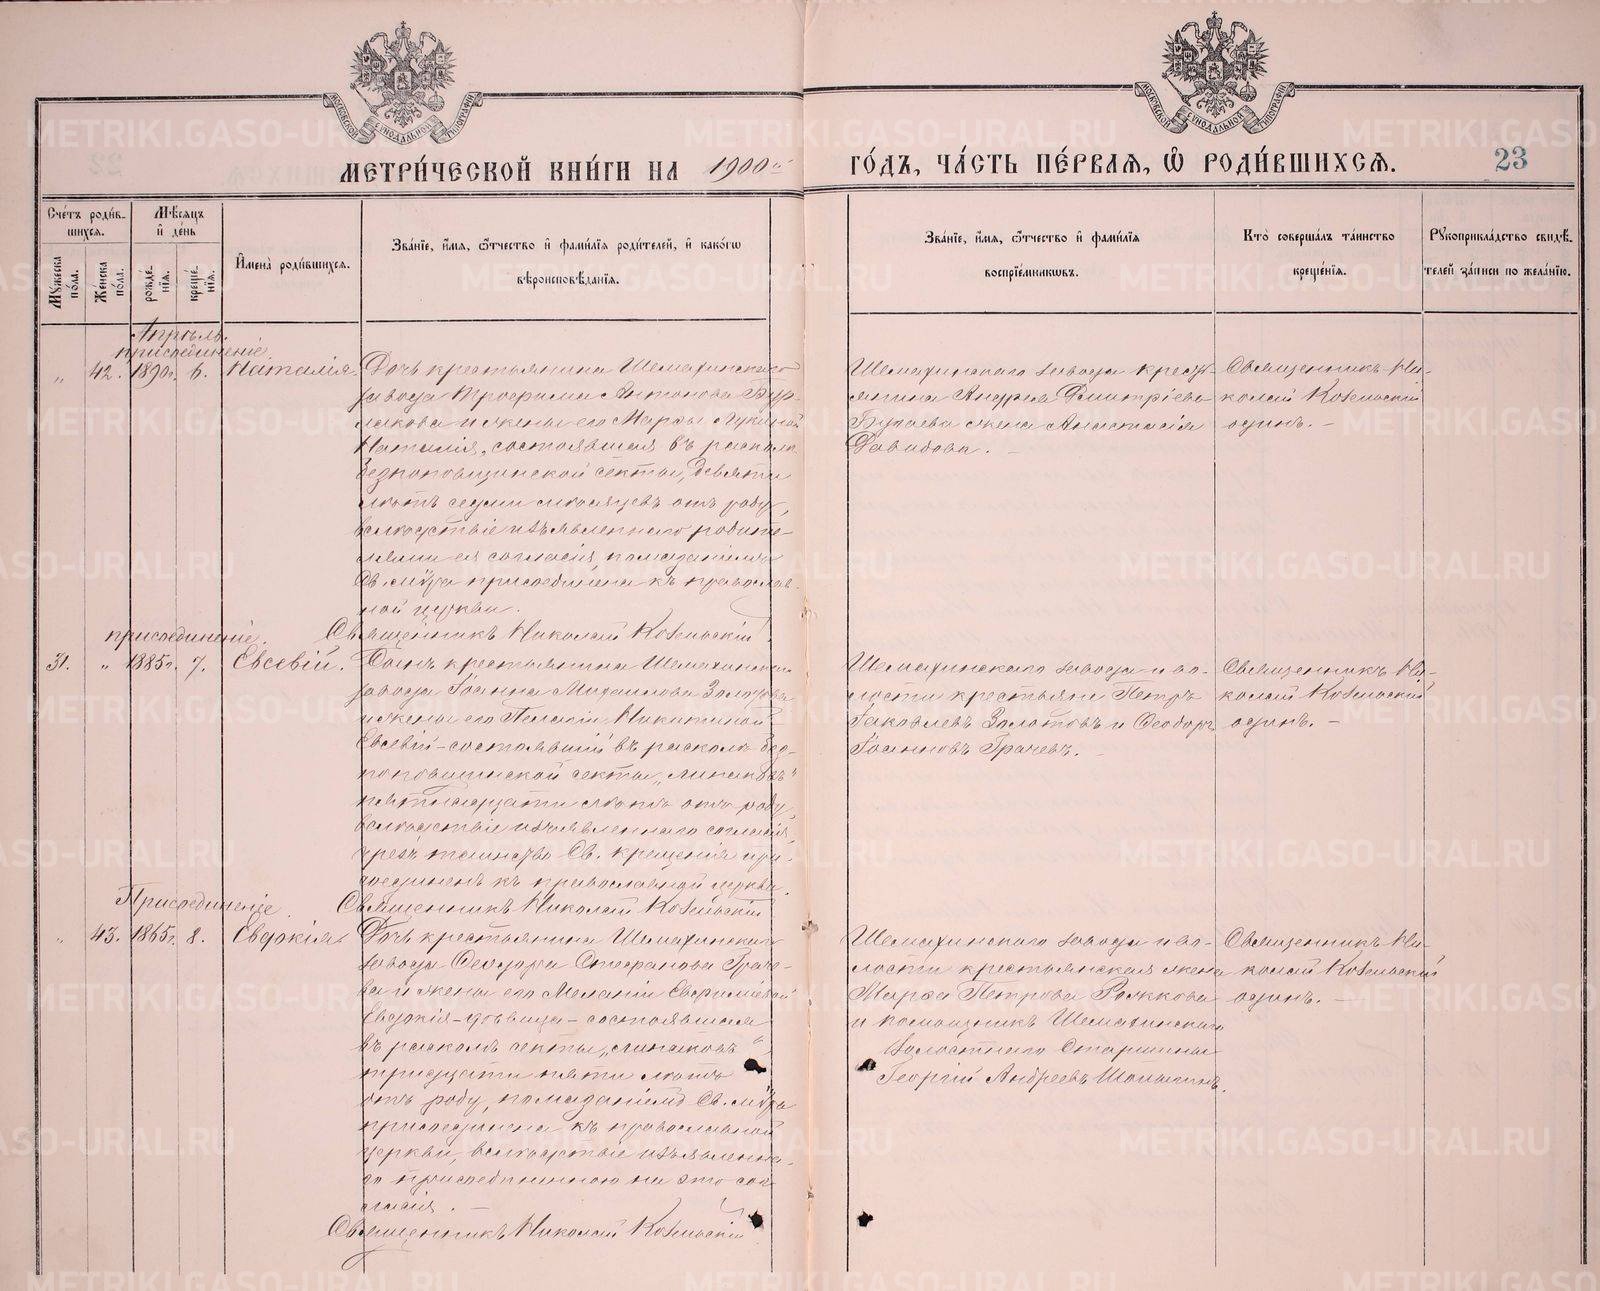 МЕТРИ́ЧЕСКОЙ КНИ́ГИ НА 1900й ГО́ДЪ, ЧА́СТЬ ПЕ́РВАЯ, Ѡ РОДИ́ВШИХСЯ. 23
Сче́тъ роди́вшихся.
Мѣ́сяцъ и де́нь
И́мена роди́вшихся.
Зва́нїе, и́мя, ѻ́тчество и фами́лїя роди́телей, и како́гѡ
вѣроисповѣ́данїя.
Зва́нїе, и́мя, ѻ́тчество и фами́лїя
воспрїе́мникѡвъ.
Кто̀ соверша́лъ та́инство
креще́нїя.
Рꙋкоприкла́дство свидѣ́телей за́писи по жела́нїю.
Мꙋ́жеска по́ла.
Же́нска по́ла.
рожде́нїя.
креще́нїя.
Апрѣль.
присоединеніе.
„ 42. 1890г. 6. Наталія.
Дочь крестьянина Шемахинскаго
завода Трофима Антонова Бур-
лакова и жены его Марѳы Лукиной
Наталія, состоявшая въ расколѣ
безпоповщинской секты, девяти
лѣтъ седми мѣсяцевъ отъ роду,
вслѣдствіе изъявленнаго родите-
лями ея согласія, помазаніемъ
Св. мѵра присоединена къ православ-
ной церкви.
Священникъ Николай Козельскій.
Шемахинскаго завода кресть-
янина Андрея Димитріева
Бугаева жена Анастасія
Давидова. –
Священникъ Ни-
колай Козельскій
одинъ. –
присоединеніе.
31. „ 1885г. 7. Евсевій.
Сынъ крестьянина Шемахинскаго
завода Іоанна Михаилова Золотова
и жены его Пелагіи Никитиной
Евсевій – состоявшій въ расколѣ без-
поповщинской секты
пятнадцати лѣтъ отъ роду,
вслѣдствіе изъявленнаго согласія,
чрезъ таинство Св. крещенія при-
соединенъ къ православной церкви.
Священникъ Николай Козельскій
Шемахинскаго завода и во-
лости крестьяне Петръ
Іаковлевъ Золотовъ и Ѳеодоръ
Іоанновъ Грачевъ. –
Священникъ Ни-
колай Козельскій
одинъ. –
Присоединеніе.
„ 43. 1865г. 8. Евдокія.
Дочь крестьянина Шемахинскаго
завода Ѳеодора Стефанова Граче-
ва и жены его Меланіи Евфиміевой
Евдокія – дѣвица – состоявшая
въ расколѣ секты
тридцати пяти лѣтъ
отъ роду, помазаніемъ Св. мѵра
присоединена къ православной
церкви, вслѣдствіе изъявленна-
го присоединенною на это сог-
ласія. –
Священникъ Николай Козельскій
Шемахинскаго завода и во-
лости крестьянская жена
Марѳа Петрова Рожкова
и помощникъ Шемахинскаго
Волостнаго Старшины
Георгій Андреевъ
Священникъ Ни-
колай Козельскій
одинъ. –
METRIKI.GASO-URAL.RU